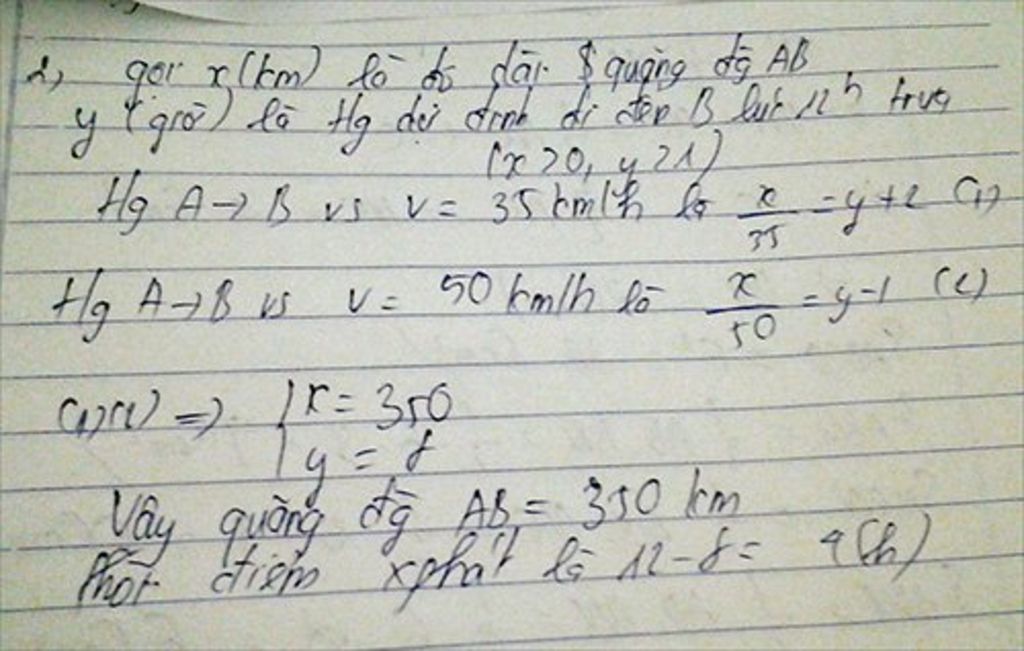 2, gọi x(km) là độ dài quãng đg AB
y (giờ) là tg dự định đi đến B lúc 12h trưa
(x>0, y>1)
tg A→B vs v = 35 km/h là x/35 = y+2 (1)
tg A→B vs v = 50 km/h là x/50 = y-1 (2)
(1)(2) => { x = 350
y = 8
Vậy quãng đg AB = 350 km
thời điểm xphát là 12-8 = 4(h)